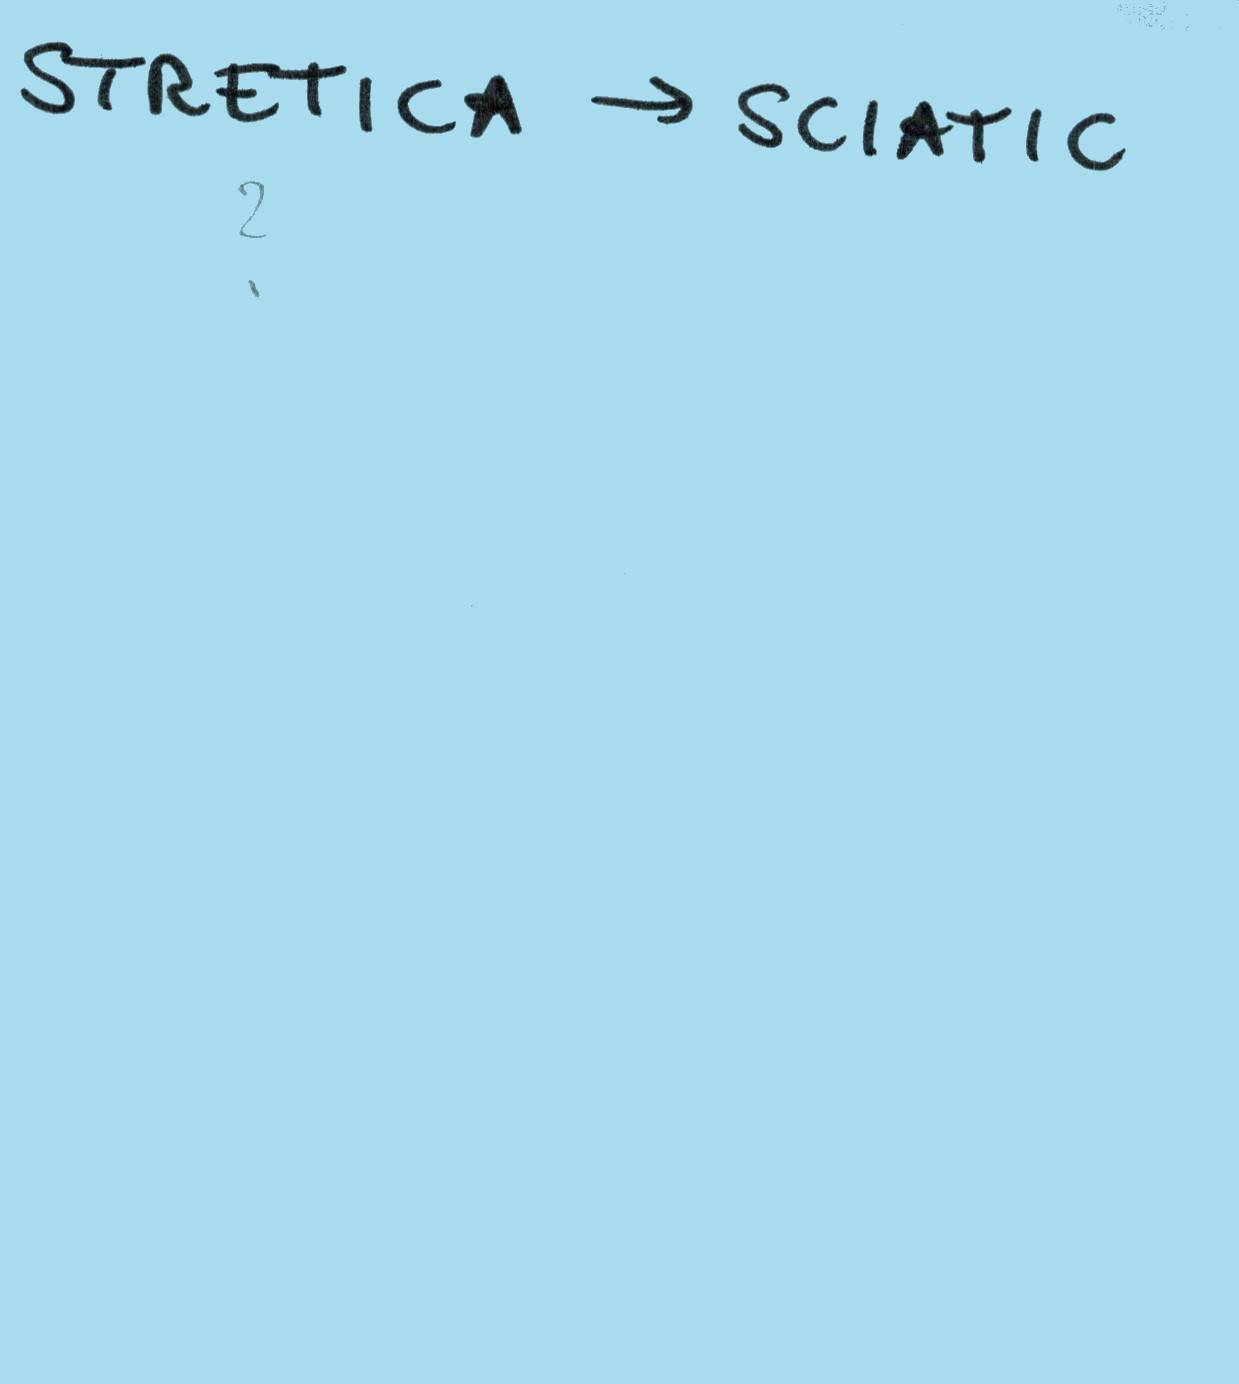 STRETICA → SCIATIC
?